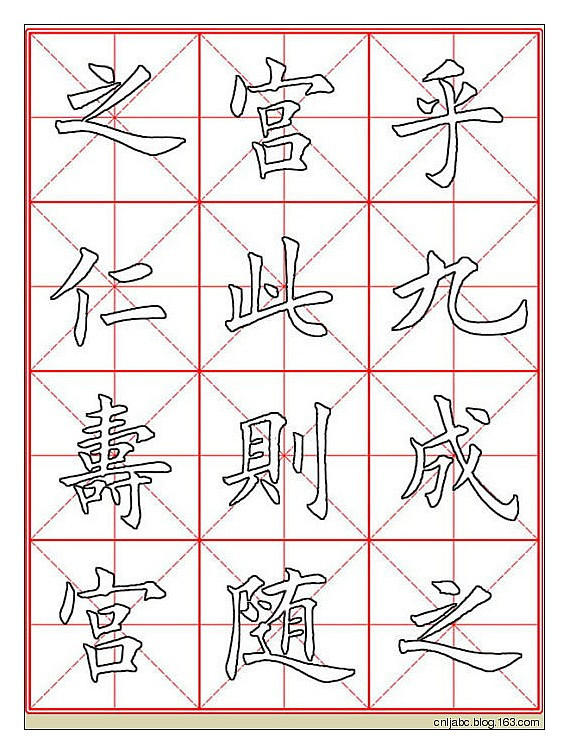 乎九成之
宫此則随
之仁壽宫
cnljabc.blog.163.com